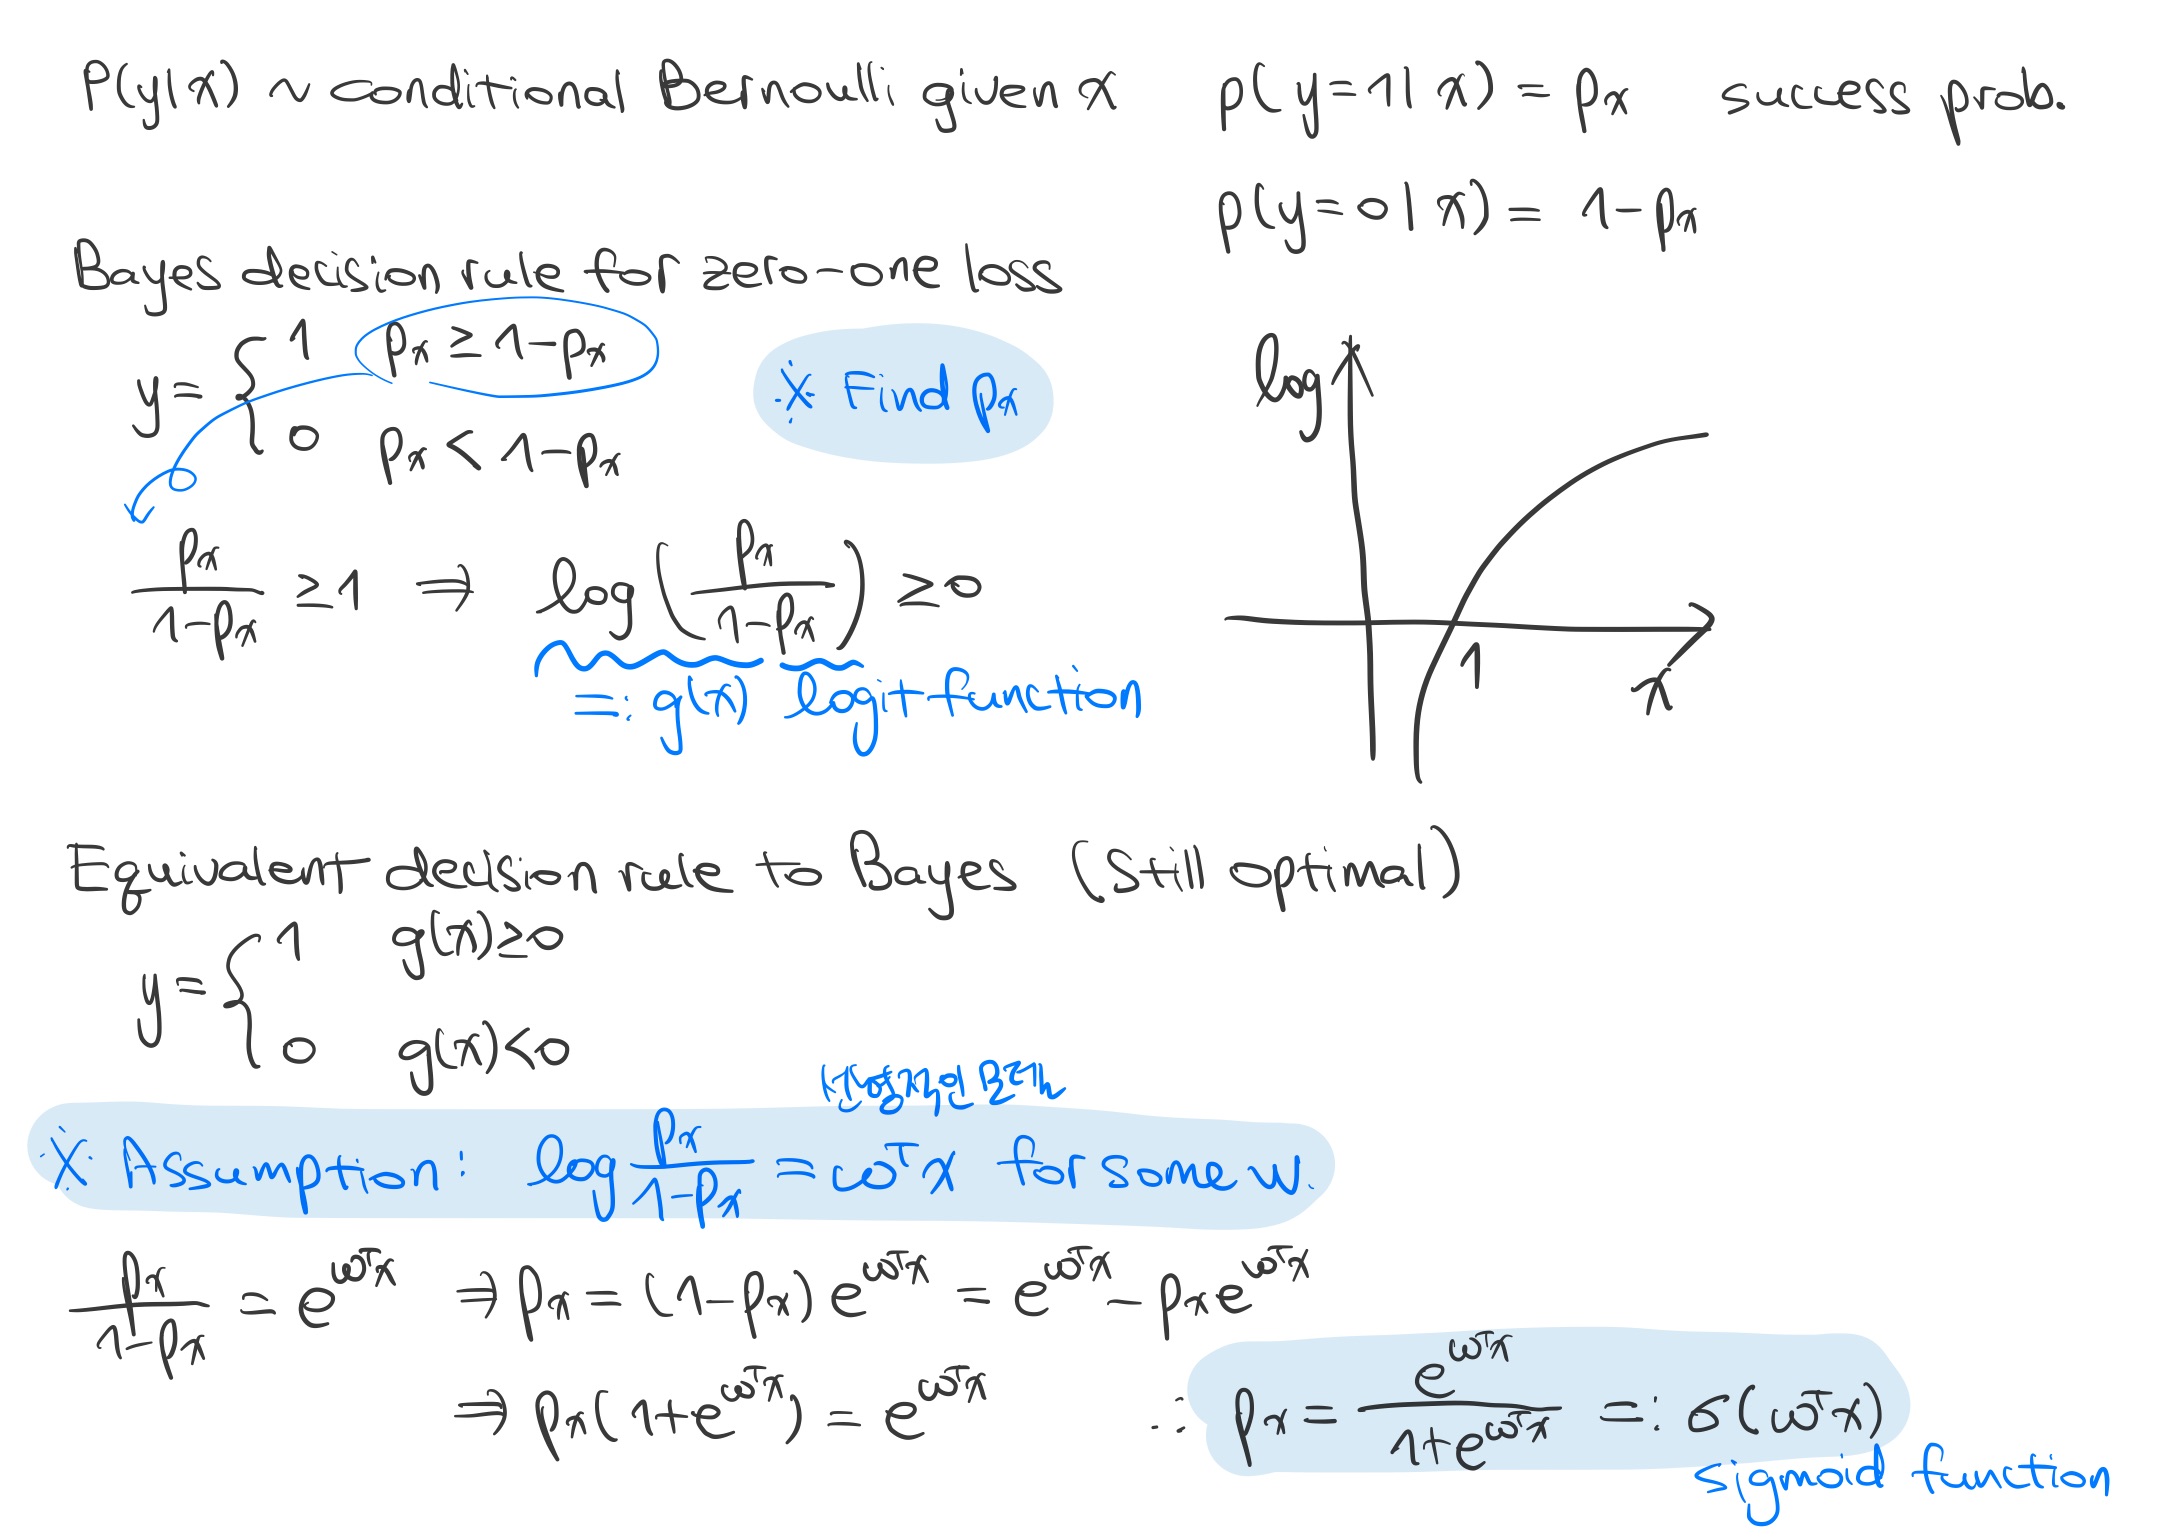 P(y|x) ~ conditional Bernoulli given x
p(y=1|x) = pₓ success prob.
p(y=0|x) = 1-pₓ
Bayes decision rule for zero-one loss
y = { 1 pₓ ≥ 1-pₓ
0 pₓ < 1-pₓ
※ Find pₓ
log
1
x
pₓ/(1-pₓ) ≥ 1 ⇒ log(pₓ/(1-pₓ)) ≥ 0
=: g(x) logit function
Equivalent decision rule to Bayes (still optimal)
y = { 1 g(x) ≥ 0
0 g(x) < 0
※ Assumption: log pₓ/(1-pₓ) = ωᵀx for some w.
pₓ/(1-pₓ) = e^(ωᵀx) ⇒ pₓ = (1-pₓ) e^(ωᵀx) = e^(ωᵀx) - pₓe^(ωᵀx)
⇒ pₓ(1+e^(ωᵀx)) = e^(ωᵀx) ∴ pₓ = e^(ωᵀx)/(1+e^(ωᵀx)) =: σ(ωᵀx)
sigmoid function